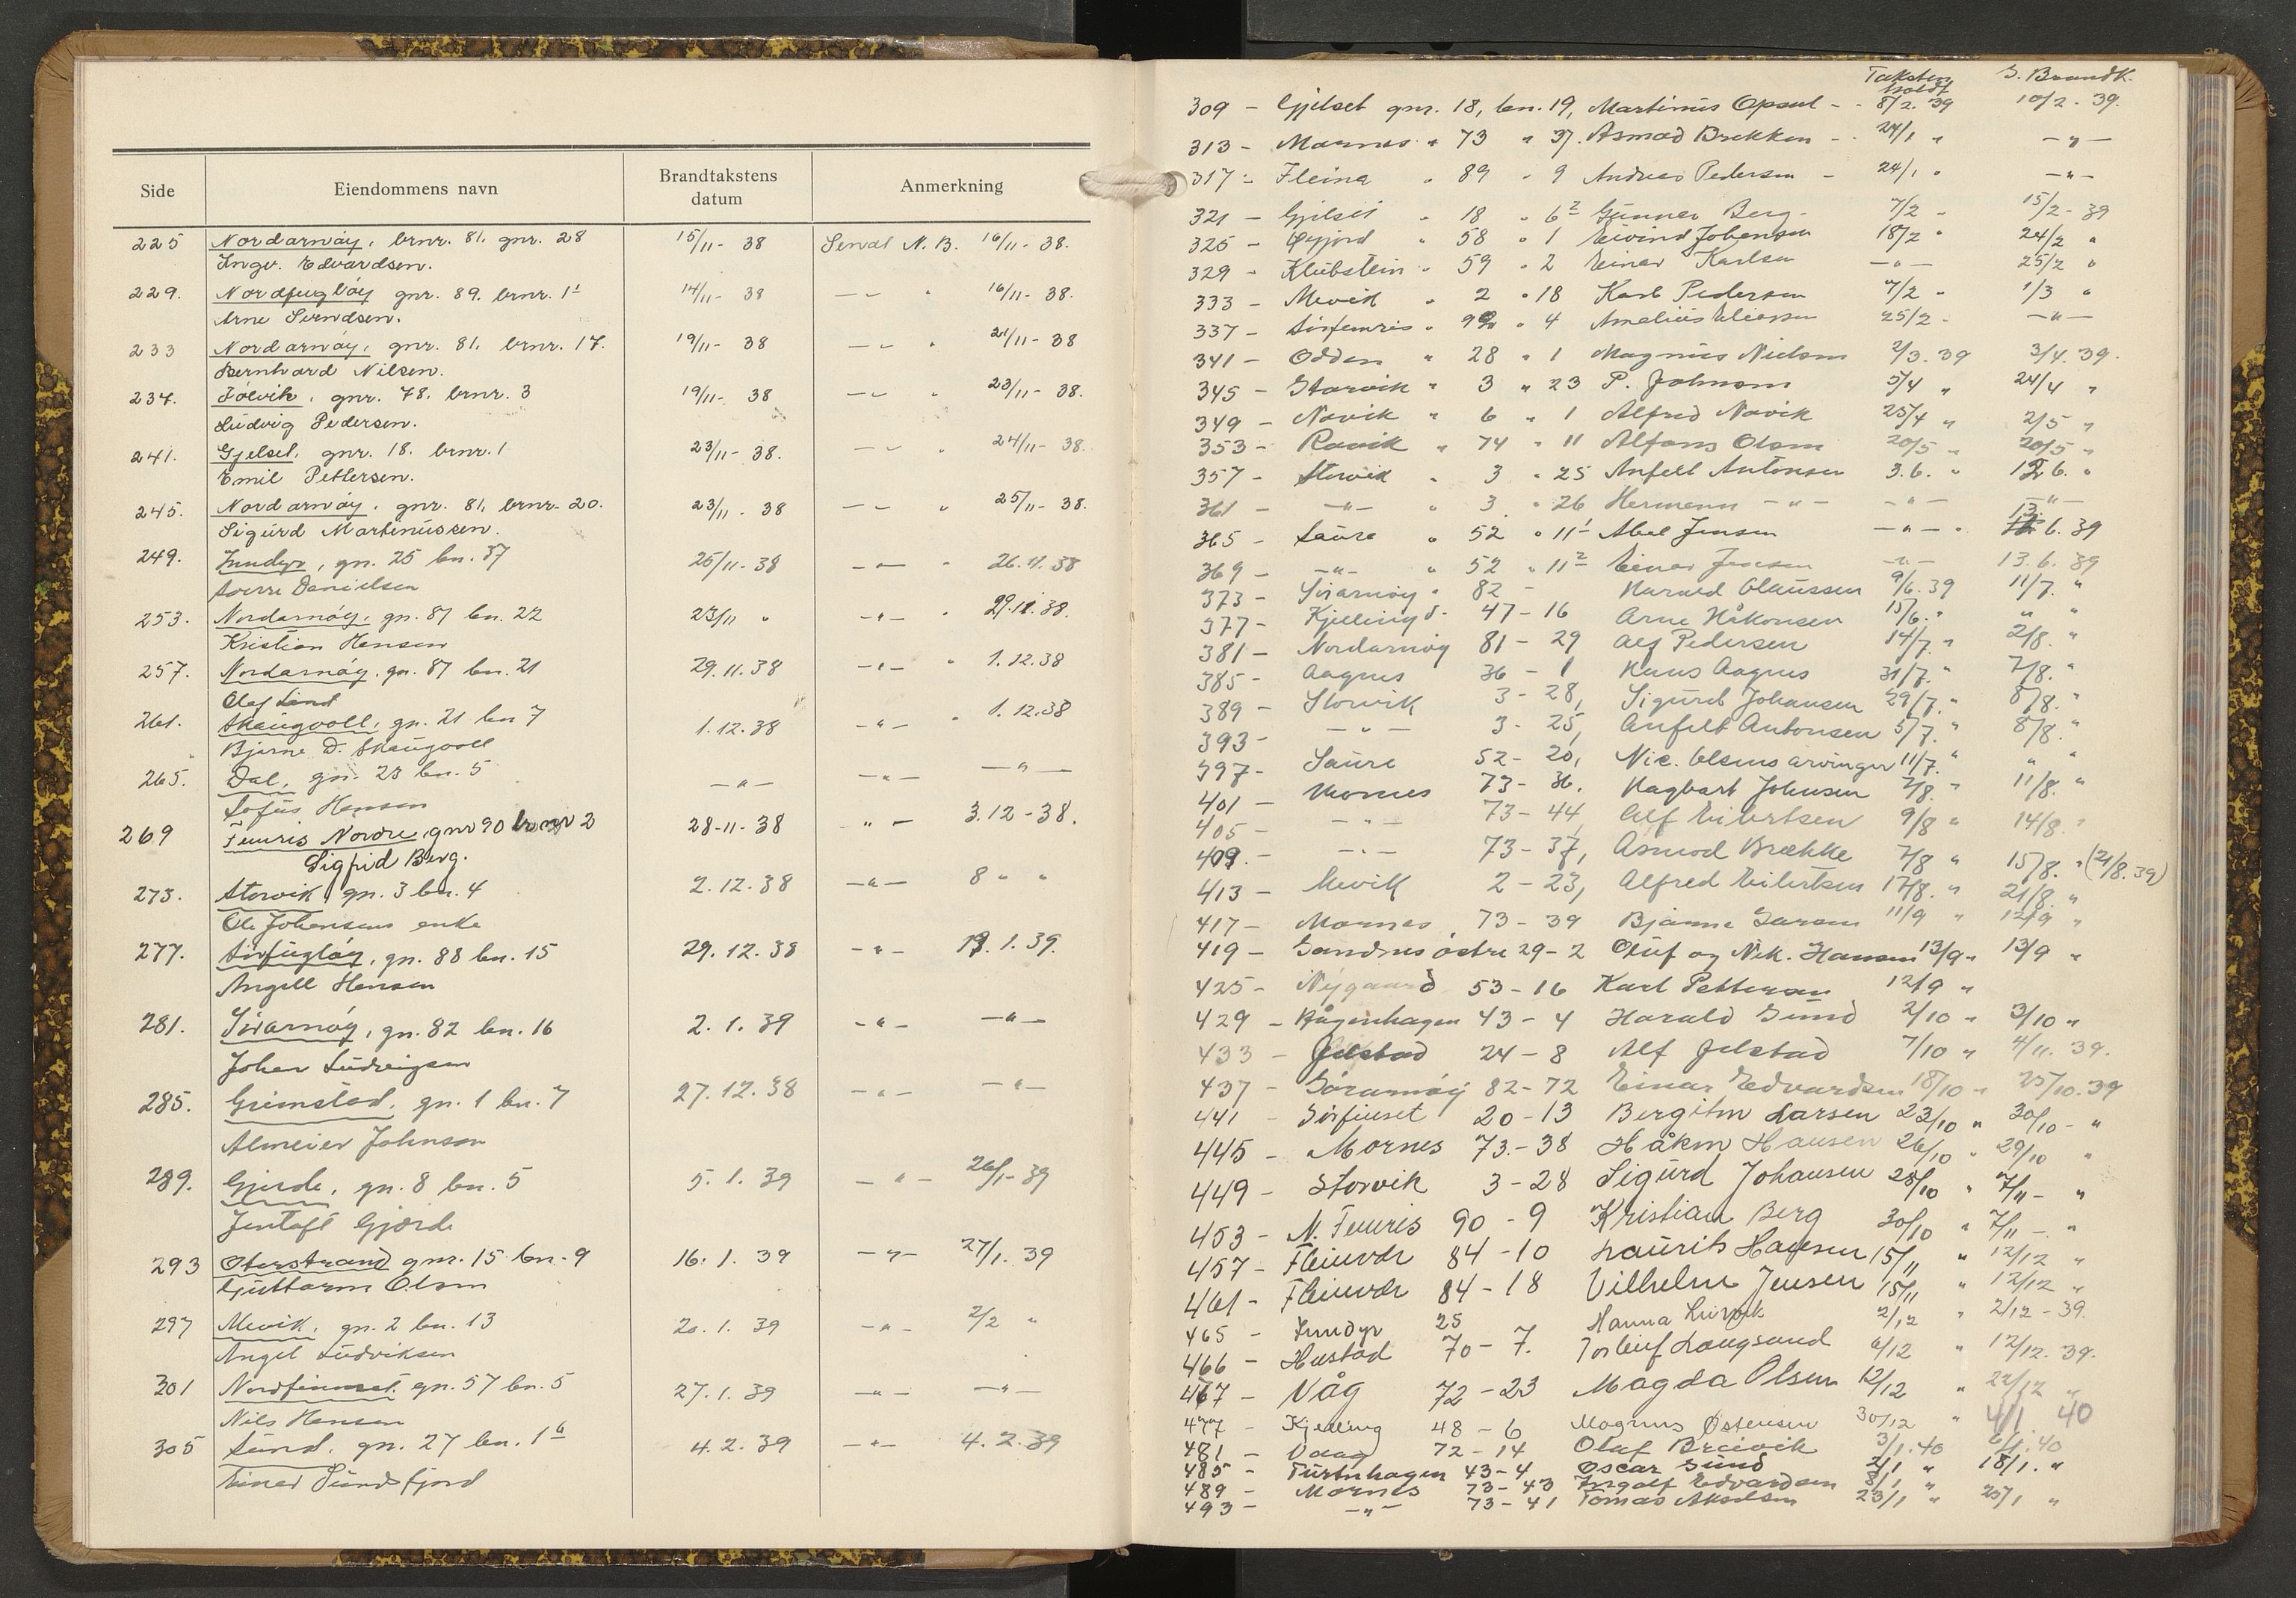 Side Eiendommens navn Brandtakstens datum Anmerkning
225 Nordarnøy, brnr. 81, gnr. 28 15/11- 38 Sendt N. B. 16/11- 38.
Ingv. Edvardsen.
229. Nordfugløy gnr. 89. brnr. 1¹ 14/11- 38 — „ — „ 16/11- 38.
Arne Svendsen.
233 Nordarnøy, gnr. 81. brnr. 17. 19/11- 38 — „ — „ 21/11- 38
Bernhard Nilsen.
237. Følvik, gnr. 78. brnr. 3 19/11- 38 — „ — „ 23/11- 38.
Ludvig Pedersen.
241. Gjelset, gnr. 18. brnr. 1 23/11- 38. — „ — „ 24/11- 38.
Emil Pettersen.
245. Nordarnøy, gnr. 81, brnr. 20. 23/11. 38 — „ — „ 25/11- 38.
Sigurd Martinussen.
249. Inndyr, gn. 25 bn. 37 25/11- 38 — „ — „ 26.11.38
Sverre Danielsen
253. Nordarnøy, gn. 81 bn. 22 23/11 „ — „ — „ 29.11.38.
Kristian Hansen
257. Nordarnøy. gn. 81 bn. 21 29.11.38 — „ — „ 1.12.38
Olaf Lind
261. Skaugvoll, gn. 21 bn 7 1.12.38 — „ — „ 1.12.38
Bjarne D. Skaugvoll
265. Dal, gn. 23 bn. 5 — „ — — „ — — „ —
Sofus Hansen
269 Femris Nordre, gnr 90 brnr 2 28-11-38 „ — 3.12-38.
Sigfrid Berg.
273. Storvik, gn. 3 bn. 4 2.12.38 — „ — 8 „ „
Ole Johansens enke
277. Sørfugløy, gn. 88 bn. 15 29.12.38 — „ — 13.1.39.
Angell Hansen
281. Sørarnøy, gn. 82 bn. 16 2.1.39 — „ — — „ —
Johan Ludvigsen
285. Grimstad, gn. 1 bn. 7 27.12.38 — „ — — „ —
Almeier Johnsen
289. Gjerde, gn. 8 bn. 5 5.1.39 — „ — 26/1-39
Jentoft Gjærde
293 Oterstrand gnr. 15 bn. 9 16.1.39 — „ — 27/1. 39
Guttorm Olsen
297 Mevik, gn. 2 bn. 13 20.1.39 — „ — 2/2 „
Angel Ludviksen
301 Nordfinnset. gn. 57 bn. 5 27.1.39 — „ — — „ —
Nils Hansen
305 Sund, gn. 27 bn. 1⁶ 4.2.39 — „ — 4.2.39
Einar Sundsfjord
Taksten holdt S. Brandk.
309 - Gjelset gnr. 18, bn. 19, Martinus Opsal - - 8/2. 39 10/2. 39.
313 - Mornes „ 73 „ 37. Asmod Brekken - . 24/1 „ — „ —
317 - Fleina „ 89 „ 9 Andreas Pedersen - 24/1 „ — „ —
321 - Gjelset „ 18 „ 6² Gunnar Berg - 7/2 „ 15/2- 39
325 - Øyjord „ 58 „ 1 Eivind Johansen 18/2 „ 24/2 „
329 - Klubstein „ 59 „ 2 Einar Karlsen — „ — 25/2 „
333 - Mevik „ 2 „ 18 Karl Pedersen 7/2 „ 1/3 „
337 - Sørfemris „ 92 „ 4 Amelius Eliassen 25/2 - — „ —
341 - Odden „ 28 „ 1 Magnus Nielsen 2/3. 39 3/4. 39.
345 - Storvik „ 3 „ 23 P. Johnsen 3/4 „ 24/4 „
349 - Novik „ 6 „ 1 Alfred Novik 25/4 „ 2/5 „
353 - Ravik „ 74 „ 11 Alfons Olsen 20/5 „ 20/5 „
357 - Storvik „ 3 „ 25 Anfelt Antonsen 3.6. „ 12.6. „
361 - — „ — „ 3 „ 26 Hermann — „ — — „ — — „ —
365 - Saura „ 52 „ 11¹ Abel Jensen — „ — „ 13. 6. 39
369 - — „ — „ 52 „ 11² Einar Jensen — „ — 13.6.39
373 - Sørarnøy „ 82 - Harald Claussen 9/6.39 11/7. „
377 - Kjelling d. 47-16 Arne Håkonsen 15/6. „ „ „
381 - Nordarnøy 81-29 Alf Pedersen 14/7. „ 2/8. „
385 - Aagnes 36-1 Hans Aagnes 31/7. „ 7/8. „
389 - Storvik 3-28, Sigurd Johansen 29/7. „ 8/8. „
393 - — „ — 3-25, Anfelt Antonsen 5/7. „ 8/8. „
397 - Saura 52-20, Nic. Olsens arvinger 11/7. „ „ „
401 - Mornes 73-36. Hagbart Johnsen 7/8. „ 11/8. „
405 - — „ — 73-44, Alf Eilertsen 9/8 „ 14/8. „
409. - — „ — 73-37, Asmod Brekke 7/8 „ 15/8. „ (21/8. 39)
413 - Mevik 2-23, Alfred Eilertsen 17/8. „ 21/8. „
417 - Mornes 73-39 Bjarne Larsen 11/9 „ 12/9 „
419 - Sandnes østre 29-2 Oluf og Nik. Hansen 13/9 „ 13/9 „
425 - Nygaard 53-16 Karl Petterson 12/9 „
429 - Bågenhagen 43-4 Harald Sund 2/10 „ 3/10 „
433 - Jelstad 24-8 Alf Jelstad 7/10 „ 4/11. 39.
437 - Sørarnøy 82-72 Einar Edvardsen 18/10 „ 25/10.39
441 - Sørfinset 20-13 Bergiton Larsen 23/10 „ 30/10 - „
445 - Mornes 73-38 Håkon Hansen 26/10 „ 29/10 „
449 - Storvik 3-28 Sigurd Johansen 28/10 „ 7/11 - „
453 - N. Femris 90-9 Kristian Berg 30/10 „ 7/11 - „
457 - Fleinvær 84-10 Laurits Hansen 15/11 „ 12/12 „
461 - Fleinvær 84-18 Vilhelm Jensen 15/11 „ 12/12 „
465 - Inndyr 25 Hanna 2/12 „ 2/12 - 39.
466 - Hustad 70-7. Torleif Langsand 6/12 „ 12/12. 39.
467 - Våg 72-23 Magda Olsen 12/12 „ 22/12 „
477 - Kjelling 48-6 Magnus Østensen 30/12 „ 4/1 40
481 - Vaag 72-14 Olaf Breivik 3/1.40 6/1.40
485 - Furtnhagen 43-4 Oscar Sund 2/1 „ 18/1. „
489 - Mornes 73-43 Ingolf Edvardsen 8/1 „
493 - — „ — 73-41 Tomas Akselsen 23/1 „ 25/1 „